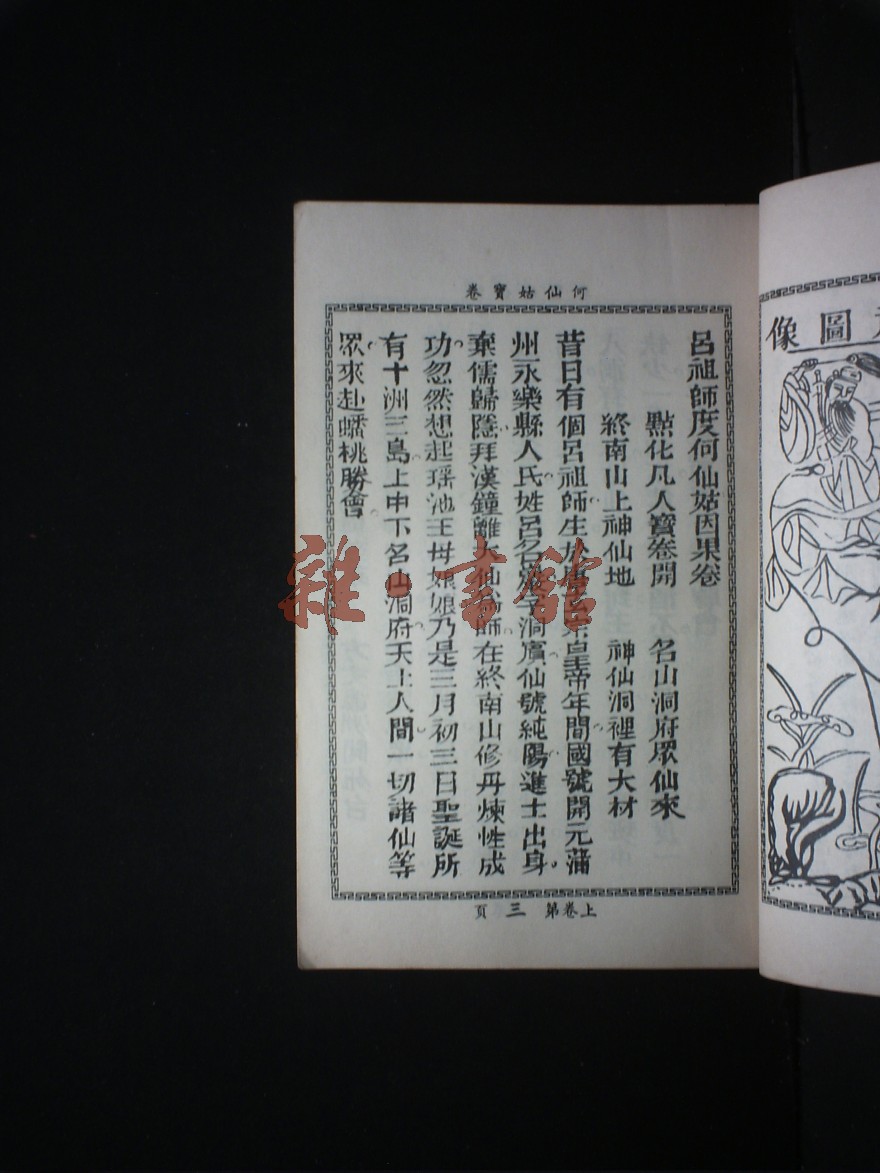 何仙姑寶卷
呂祖師度何仙姑因果卷
點化凡人寶卷開 名山洞府眾仙來
終南山上神仙地 神仙洞裡有大材
昔日有個呂祖師生於唐 皇帝年間國號開元蒲
州永樂縣人氏姓呂名 洞賓仙號純陽進士出身
棄儒歸隱拜漢鐘離大仙為師在終南山修丹煉性成
功忽然想起瑤池王母娘娘乃是三月初三日聖誕所
有十洲三島上中下名山洞府天上人間一切諸仙等
眾來赴蟠桃勝會
上卷第三頁
圖像
雜·書館